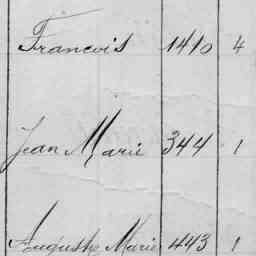 Francois 1410 4
Jean Marie 344 1
Auguste Marie 443 1